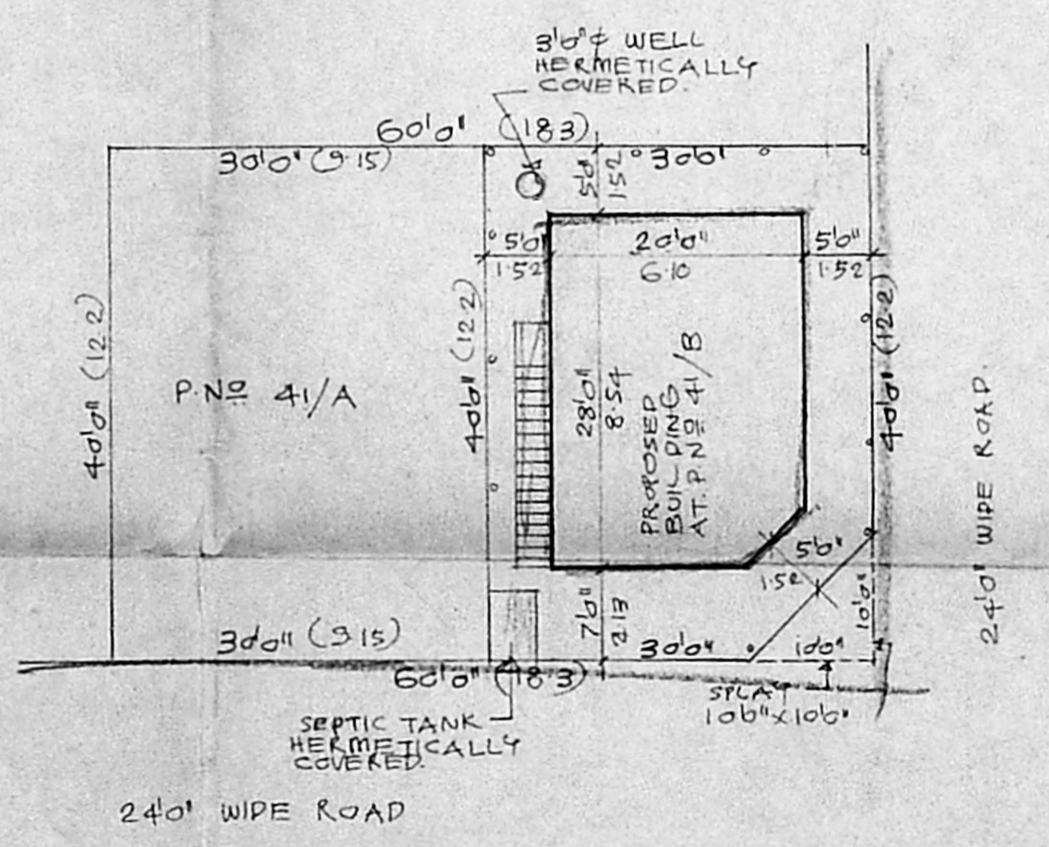 3'0"¢ WELL
HERMETICALLY
COVERED.
60'0" (183)
30'0" (9.15)
30'0"
5'0"
1.52
5'0"
1.52
20'0"
6.10
5'0"
1.52
40'0" (12.2)
P.Nº 41/A
40'0" (12.2)
28'0"
8.54
PROPOSED
BUILDING
AT. P.Nº 41/B
40'0" (12.2)
24'0" WIDE ROAD.
5'0"
1.52
10'0"
30'0" (9.15)
7'0"
2.13
30'0"
10'0"
60'0" (18.3)
SPLAY
10'0"X10'0"
SEPTIC TANK
HERMETICALLY
COVERED.
24'0" WIDE ROAD